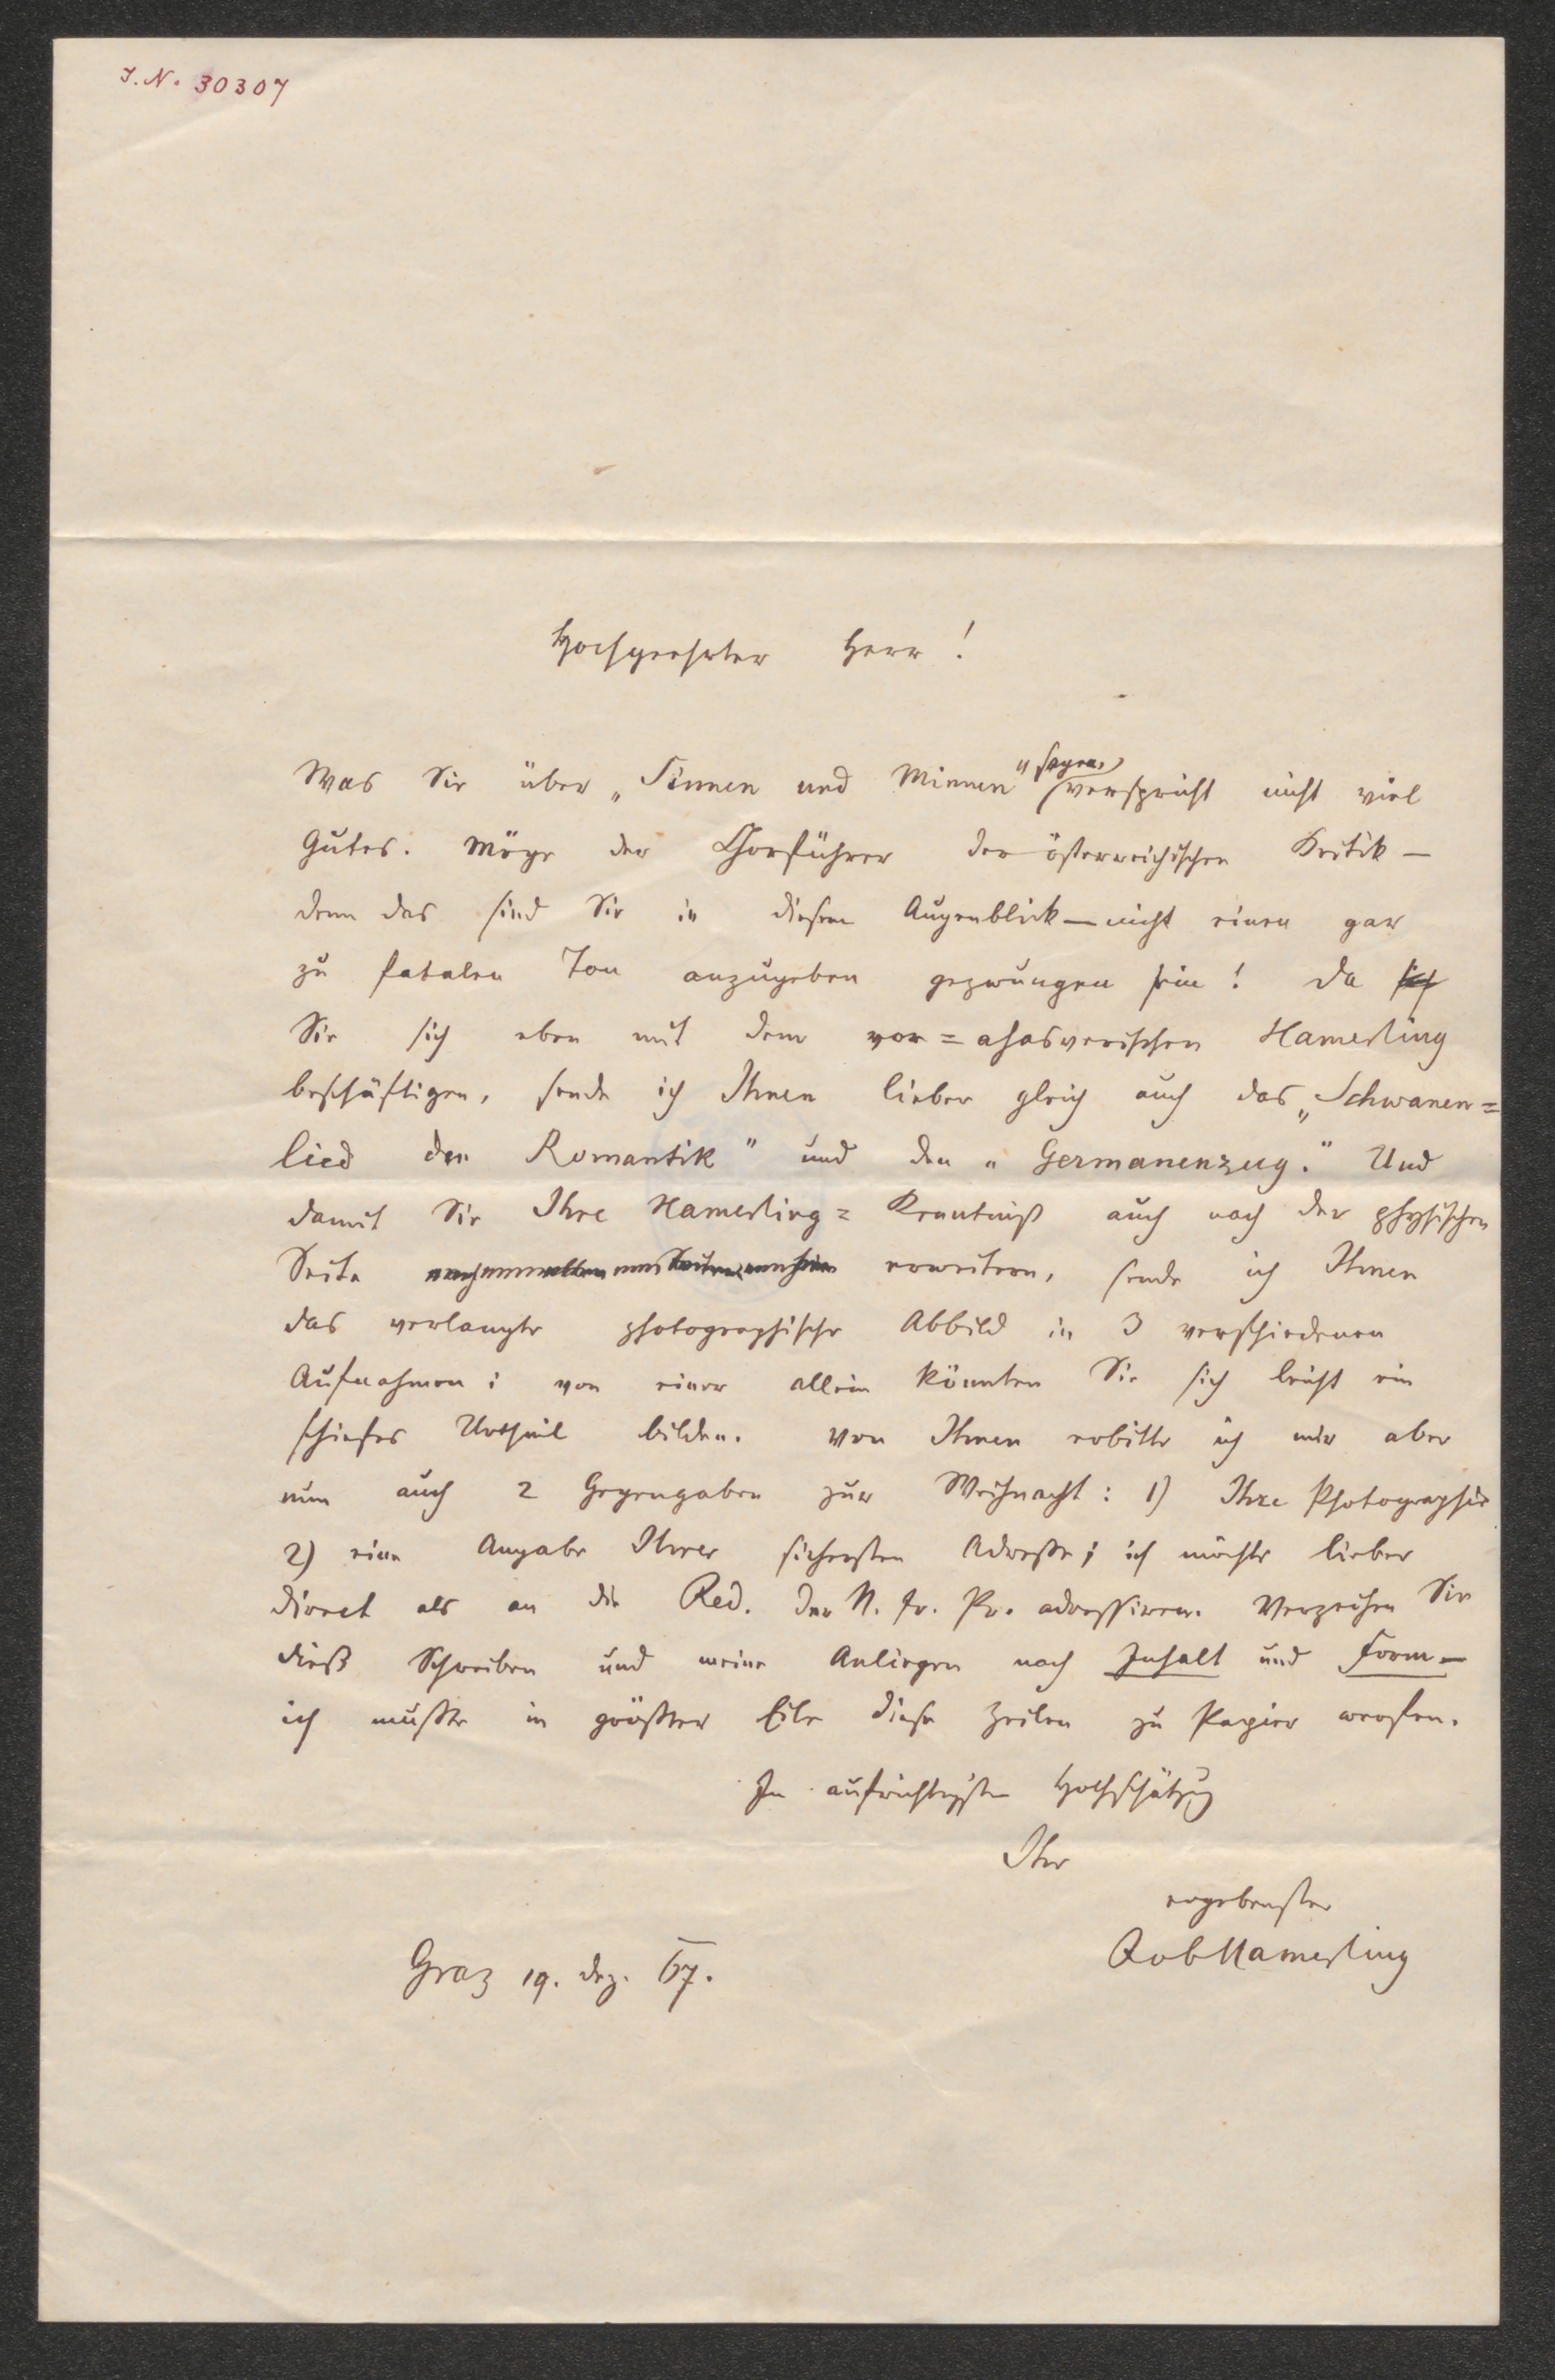 I. N. 30307
Hochgeehrter Herr!
Was Sie über „Sinnen und Minnen" sagen, verspricht nicht viel
Gutes. Möge der Chorführer der österreichischen Kritik —
denn das sind Sie in diesem Augenblick — nicht einen gar
zu fatalen Ton anzugeben gezwungen sein! Da
Sie sich eben mit dem vor=ahasverischen Hamerling
beschäftigen, sende ich Ihnen lieber gleich auch das „Schwanen=
lied der Romantik" und den „Germanenzug." Und
damit Sie Ihre Hamerling=Kenntniß auch nach der physischen
Seite erweitern, sende ich Ihnen
das verlangte photographische Abbild in 3 verschiedenen
Aufnahmen; von einer allein könnten Sie sich leicht ein
schiefes Urtheil bilden. Von Ihnen erbitte ich mir aber
nun auch 2 Gegengaben zur Weihnacht: 1) Ihre Photographie
2) eine Angabe Ihrer sichersten Adresse; ich möchte lieber
direct als an die Red. der N. fr. Pr. adressiren. Verzeihen Sie
dieß Schreiben und meine Anliegen nach Inhalt und Form —
ich mußte in größter Eile diese Zeilen zu Papier werfen.
In aufrichtigster Hochschätzung
Ihr
ergebenster
Rob Hamerling
Graz 19. Dez. 67.